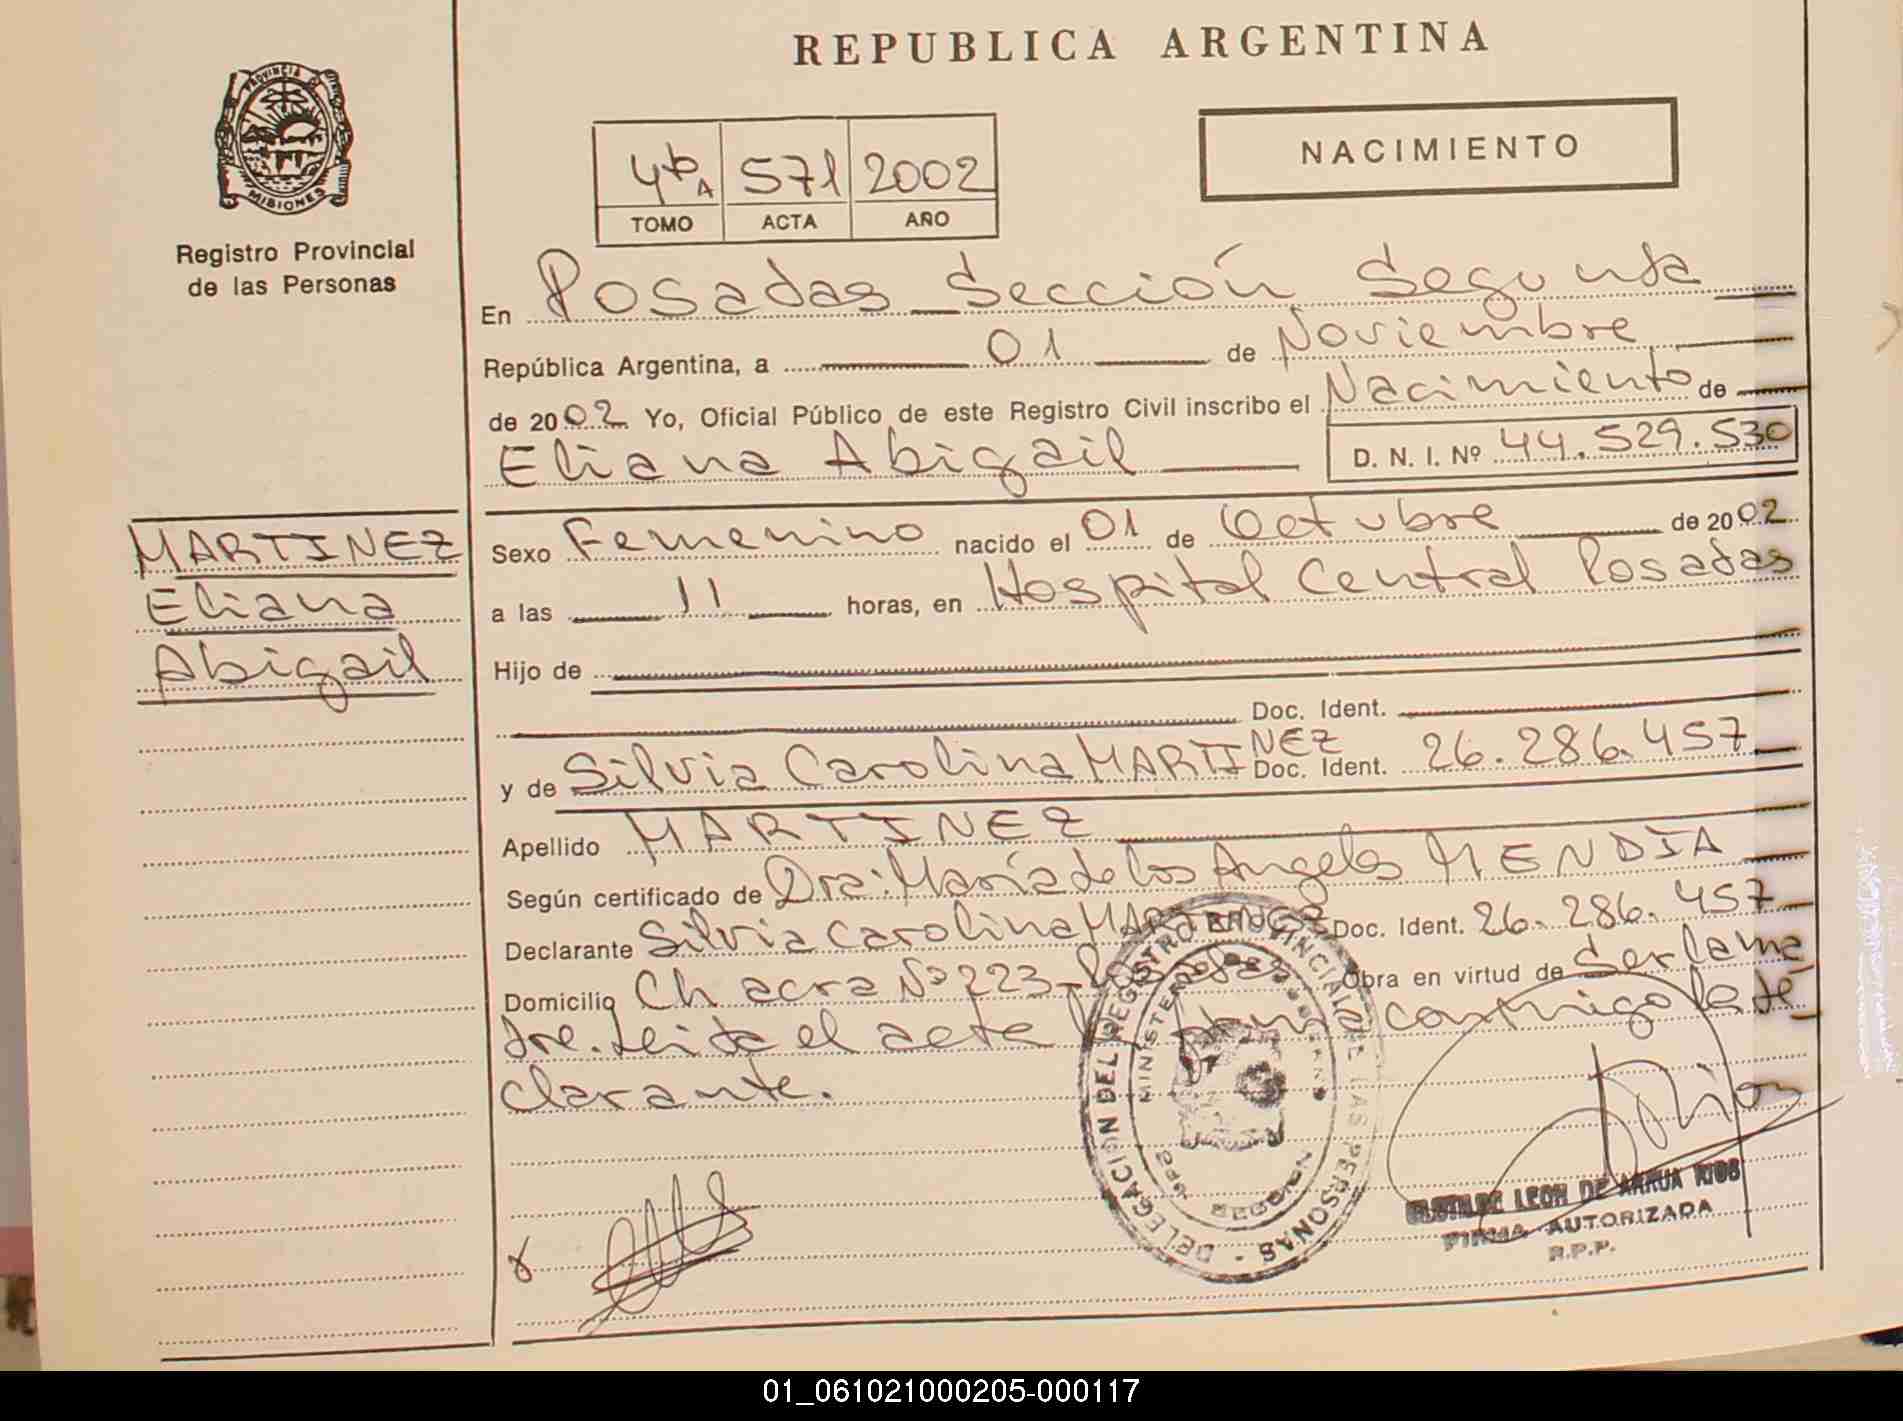 REPUBLICA ARGENTINA
PROVINCIA
MISIONES
Registro Provincial
de las Personas
4tº A 571 2002
TOMO ACTA AÑO
NACIMIENTO
En Posadas Sección Segunda
República Argentina, a 01 de Noviembre
de 2002 Yo, Oficial Público de este Registro Civil inscribo el Nacimiento de
Eliana Abigail D. N. I. Nº 44.529.530
MARTINEZ
Eliana
Abigail
Sexo Femenino nacido el 01 de Octubre de 2002
a las 11 horas, en Hospital Central Posadas
Hijo de
Doc. Ident.
y de Silvia Carolina MARTINEZ Doc. Ident. 26.286.457
Apellido MARTINEZ
Según certificado de Dra: María de los Angeles MENDIA
Declarante Silvia Carolina MARTINEZ Doc. Ident. 26.286.457
Domicilio Chacra Nº 223 - Posadas Obra en virtud de Ser la ma
dre. Leida el acta la firma conmigo la de
clarante.
DELEGACION DEL REGISTRO PROVINCIAL DE LAS PERSONAS
MINISTERIO DE GOBIERNO
CLOTILDE LEON DE ARRUA RIOS
FIRMA AUTORIZADA
R.P.P.
01_061021000205-000117